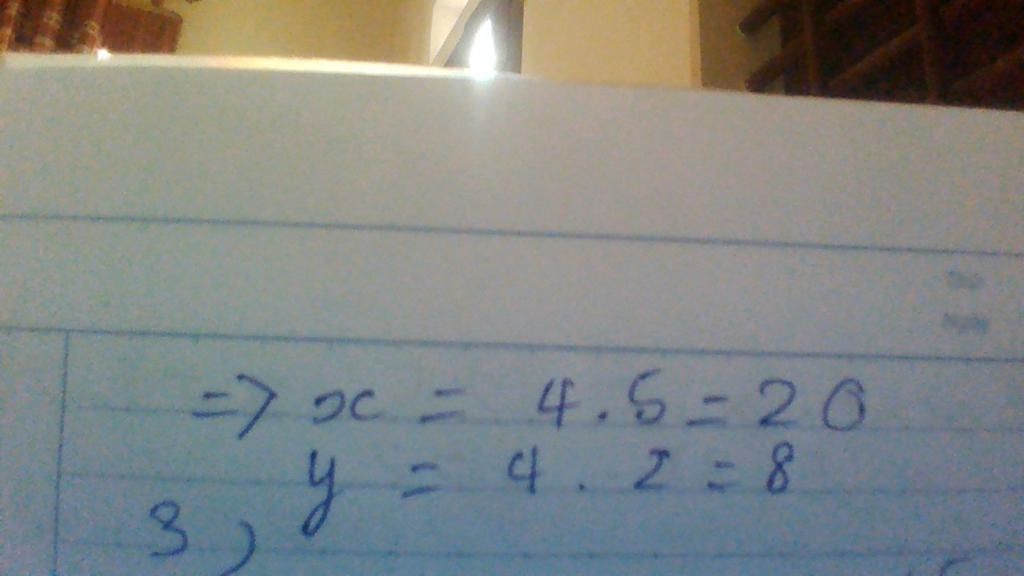 => x = 4.5=20
y = 4.2=8
3)